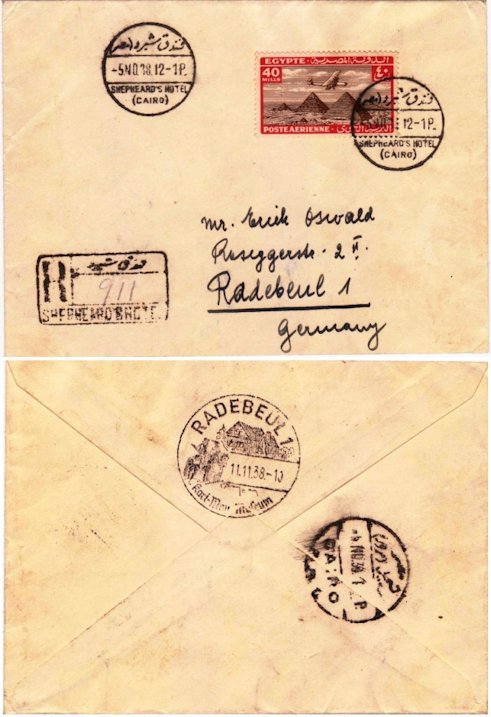 فندق شبرد (مصر)
-5NO.38.12-1P.
SHEPHEARD'S HOTEL
(CAIRO)
EGYPTE الدولة المصرية
40
MILLS
٤٠
POSTE AERIENNE
فندق شبرد (مصر)
12-1P.
SHEPHEARD'S HOTEL
(CAIRO)
Mr. Erich Oswald
Roseggerstr. 2 II.
Radebeul 1
Germany
R
فندق شبرد
911
SHEPHEARD'S HOTEL
RADEBEUL 1
11.11.38.-10
Karl-May Museum
NO.38
CAIRO